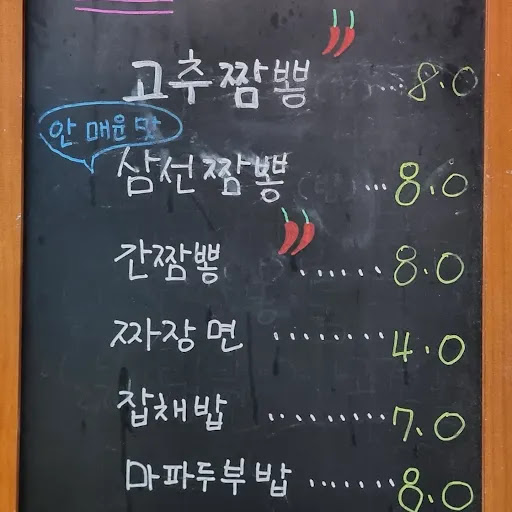 고추짬뽕 ... 8.0
안 매운 맛
삼선짬뽕 ... 8.0
간짬뽕 ...... 8.0
짜장면 ......... 4.0
잡채밥 ......... 7.0
마파두부밥 ....... 8.0